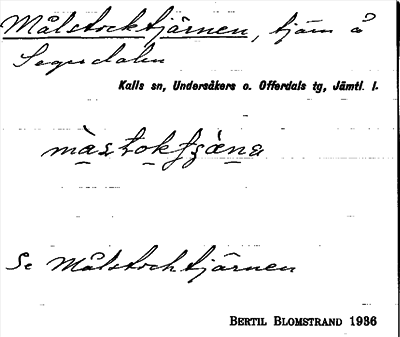 Målstocktjärnen, tjärn å
Sogudalen
Kalls sn, Undersåkers o. Offerdals tg, Jämtl. l.
màstokʃʃæ̀na
Se Målstocktjärnen
BERTIL BLOMSTRAND 1936